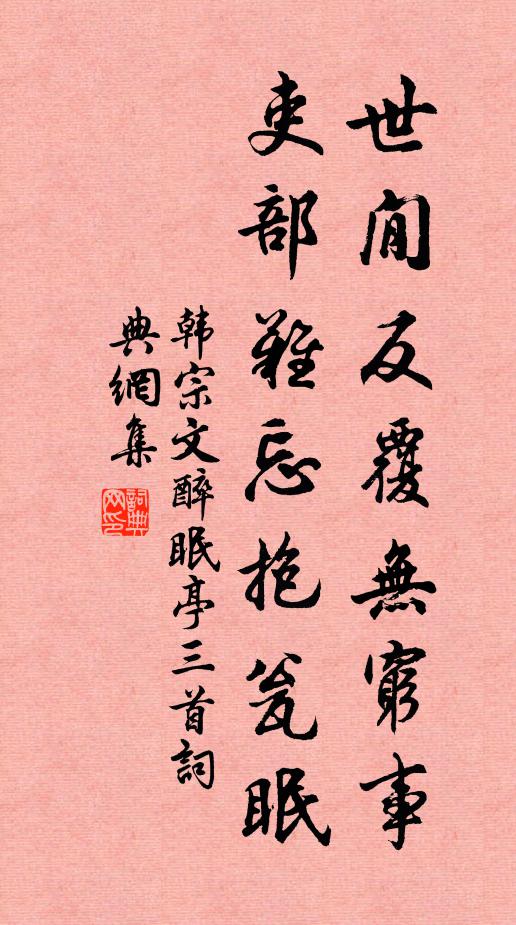 世間反覆無窮事
吏部難忘抱瓮眠
韩宗文醉眠亭三首詞
典網集
詞典
网印